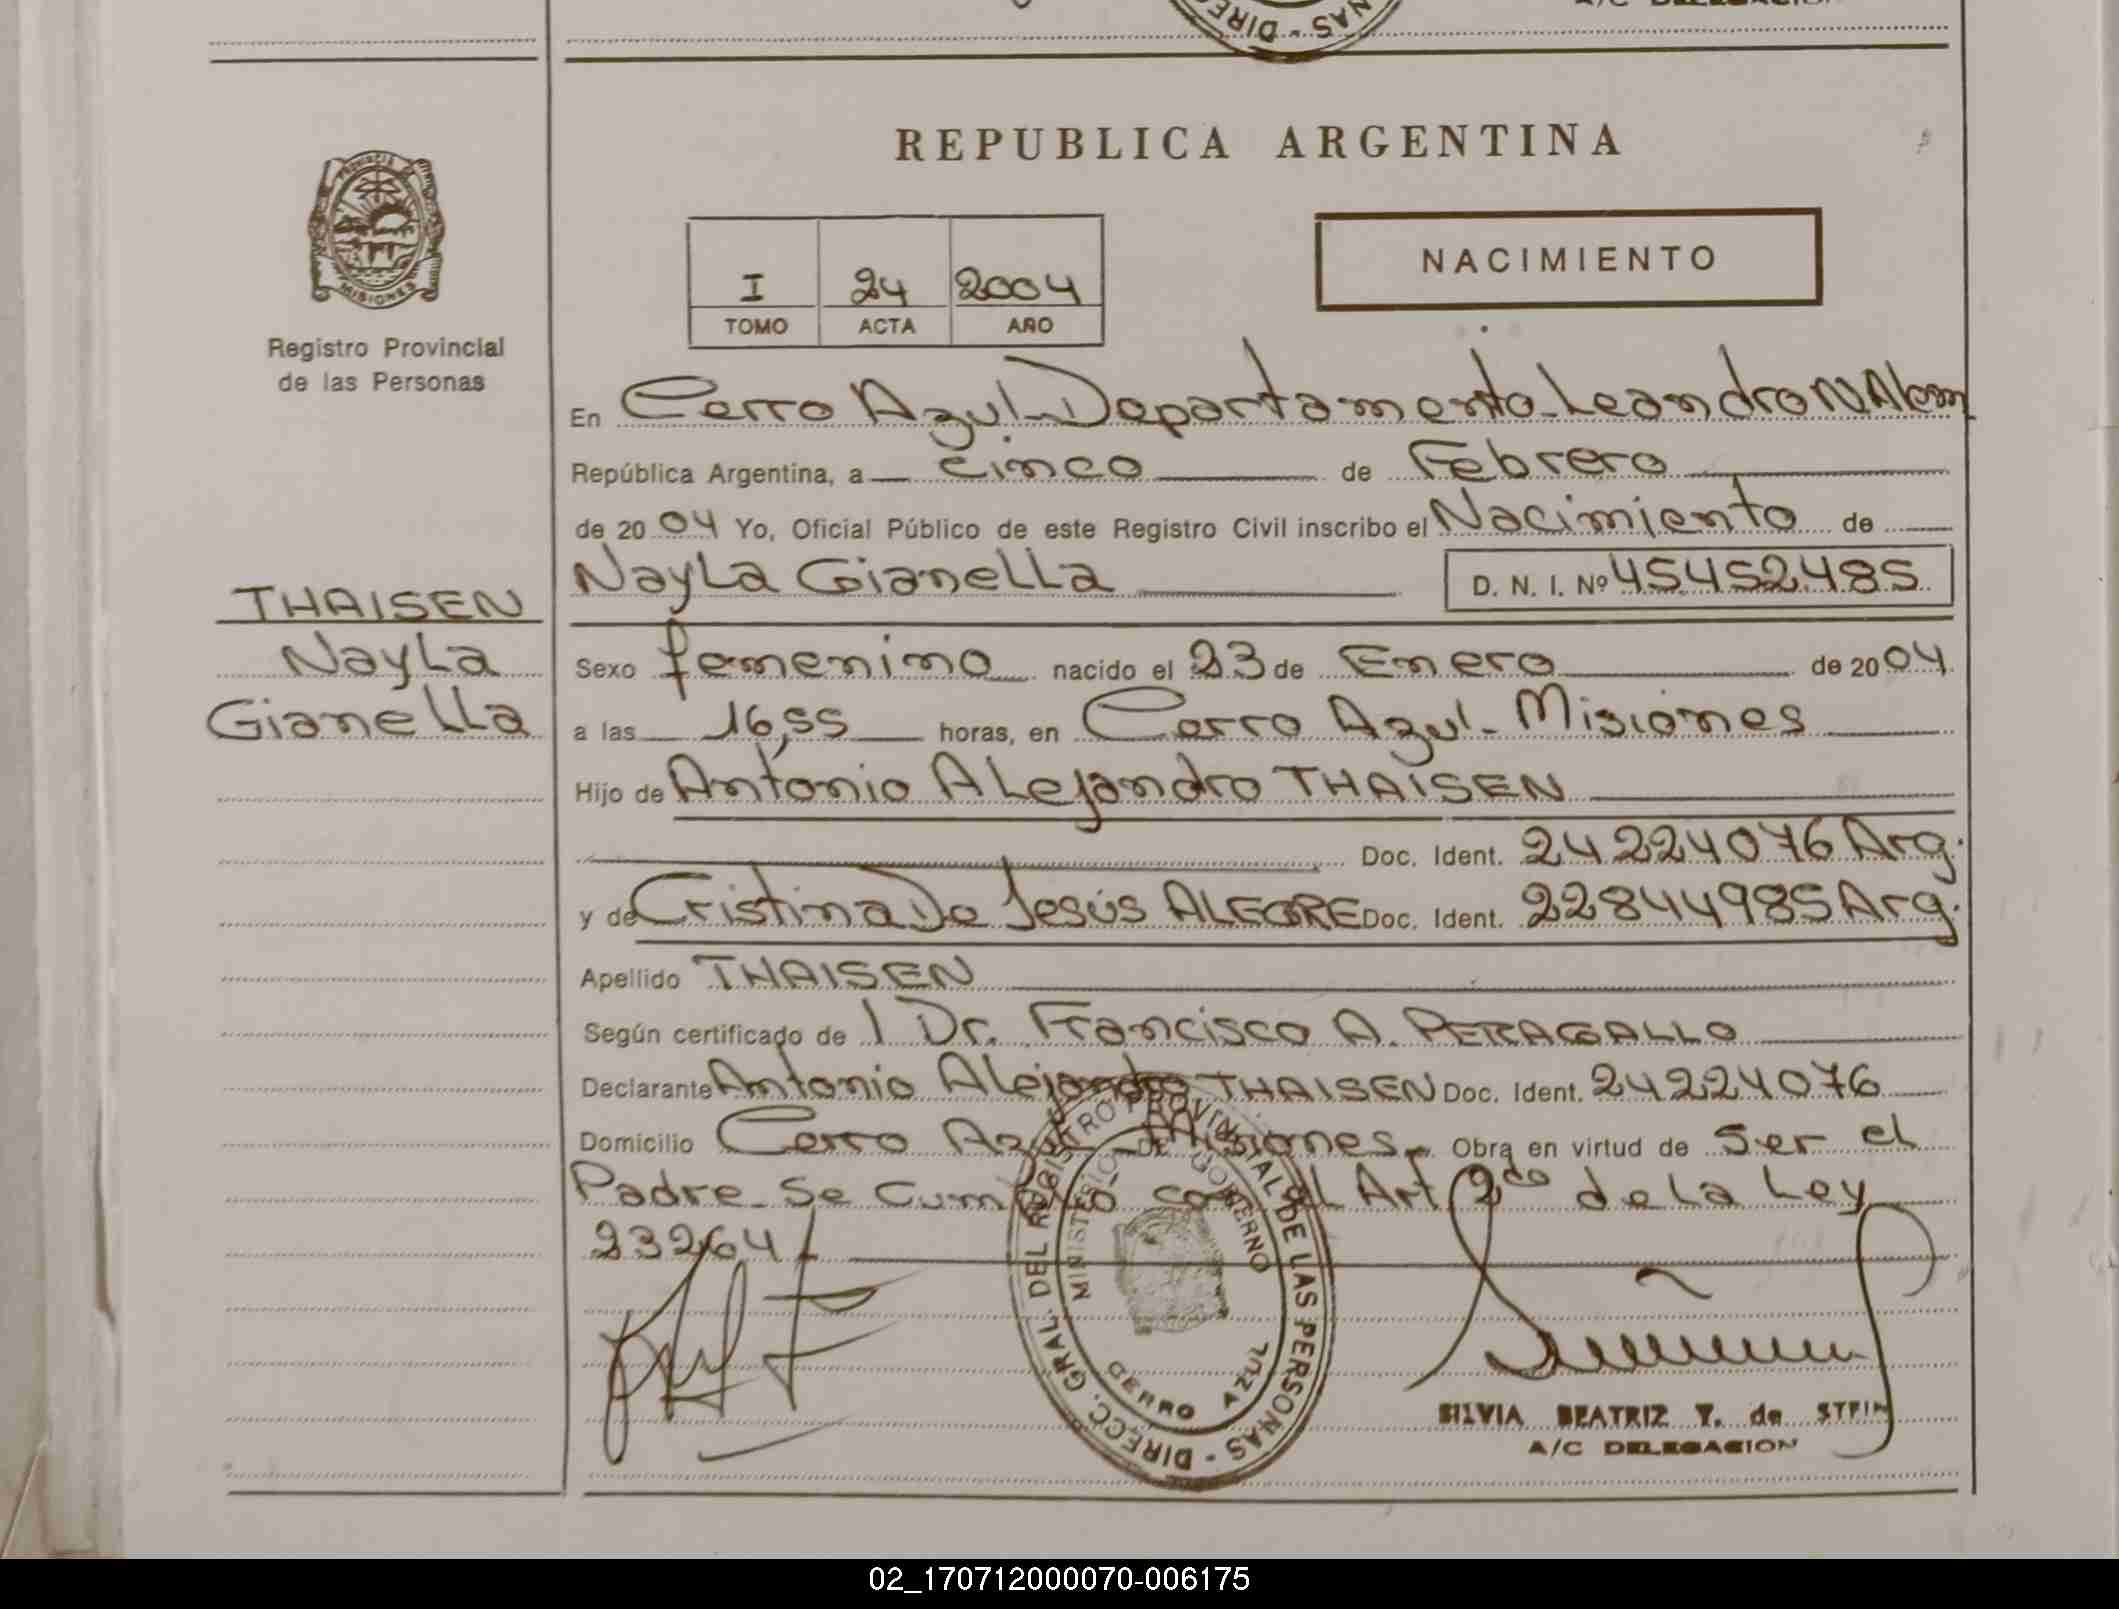 REPUBLICA ARGENTINA
PROVINCIA
MISIONES
Registro Provincial
de las Personas
I 24 2004
TOMO ACTA AÑO
NACIMIENTO
En Cerro Azul. Departamento Leandro N Alem
República Argentina, a cinco de Febrero
de 20 04 Yo, Oficial Público de este Registro Civil inscribo el Nacimiento de
Nayla Gianella D. N. I. Nº 45452485
THAISEN
Nayla
Gianella
Sexo femenino nacido el 23 de Enero de 20 04
a las 16,55 horas, en Cerro Azul - Misiones
Hijo de Antonio Alejandro THAISEN
Doc. Ident. 24224076 Arg.
y de Cristina De Jesús ALEGRE Doc. Ident. 22844985 Arg.
Apellido THAISEN
Según certificado de l Dr. Francisco A. PERAGALLO
Declarante Antonio Alejandro THAISEN Doc. Ident. 24224076
Domicilio Cerro Azul - Misiones. Obra en virtud de ser el
Padre - Se cumplió con el Art 2do de la Ley
23264.
DIRECC. GRAL. DEL REGISTRO PROVINCIAL DE LAS PERSONAS
MINISTERIO DE GOBIERNO
CERRO AZUL
SILVIA BEATRIZ T. de STEIN
A/C DELEGACION
02_170712000070-006175